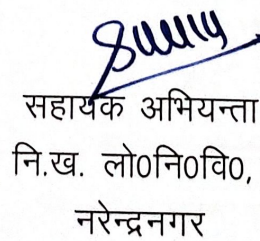 सहायक अभियन्ता
नि.ख. लो0नि0वि0,
नरेन्द्रनगर